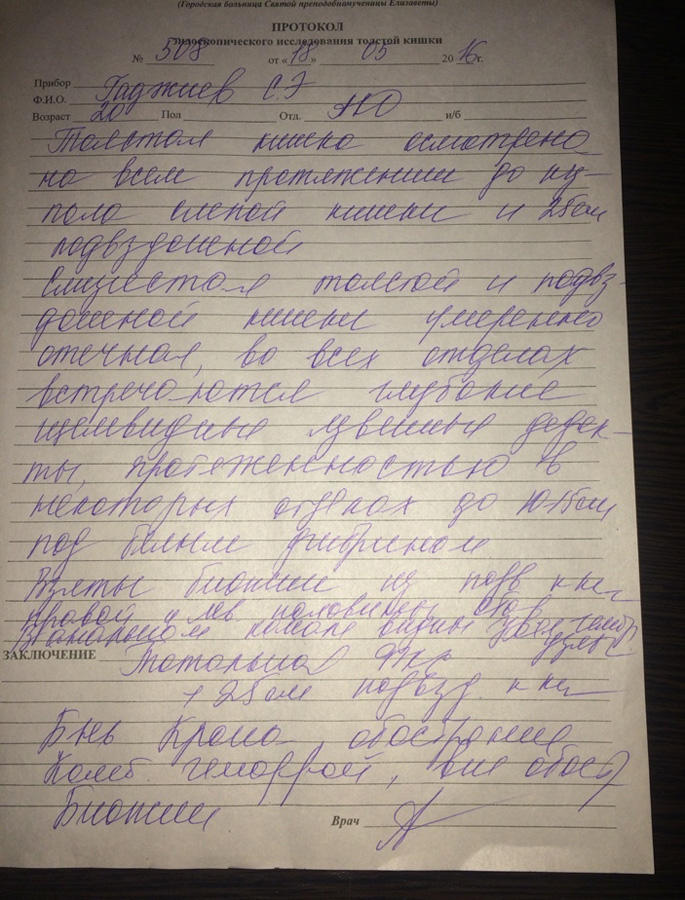 (Городская больница Святой преподобномученицы Елизаветы)
ПРОТОКОЛ
эндоскопического исследования толстой кишки
№ 508 от «18» 05 2016г.
Прибор
Ф.И.О. Гаджиев С.Э
Возраст 20 Пол Отд. и/б
Толстая кишка осмотрена
на всем протяжении до ку-
пола слепой кишки и 25см
подвздошной
Слизистая толстой и подвз-
дошной кишки умеренно
отечная, во всех отделах
встречаются глубокие
щелевидные язвенные дефек-
ты, протяженностью в
некоторых отделах до 10-15см
под белым фибрином
Взяты биопсии из подв кки
правой и лев половины
В анальном канале видны
ЗАКЛЮЧЕНИЕ Тотальная Фкс
+ 25см подвзд. кки
Б-нь Крона, обострение
Комб. геморрой, вне обостр
Биопсии
Врач